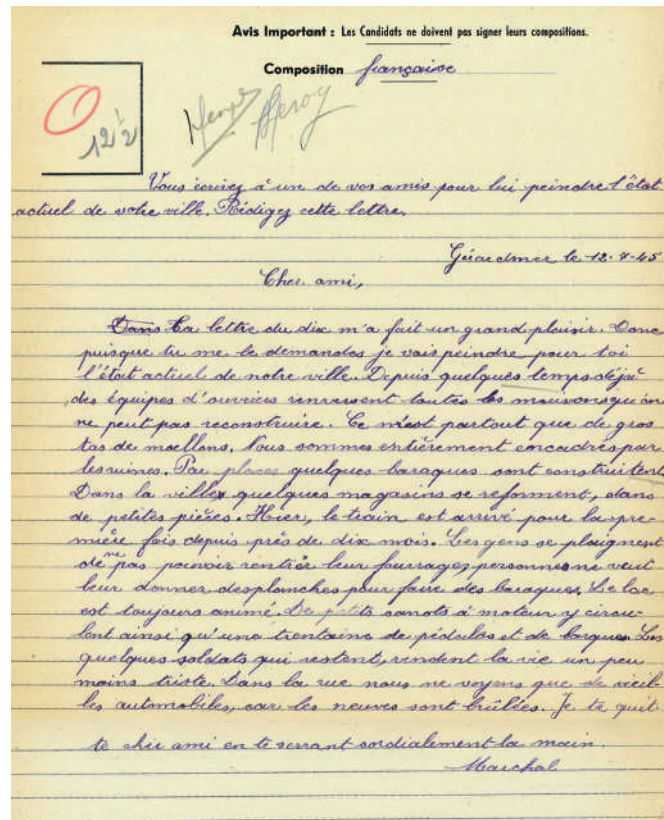 Avis Important : Les Candidats ne doivent pas signer leurs compositions.
Composition française
0
12 1/2
Vous écrivez à un de vos amis pour lui peindre l'état
actuel de votre ville. Rédigez cette lettre.
Gérardmer le 12-7-45
Cher ami,
Dans Ta lettre du dix m'a fait un grand plaisir. Donc
puisque tu me le demandes je vais peindre pour toi
l'état actuel de notre ville. Depuis quelques temps déjà
des équipes d'ouvriers renversent toutes les maisons qu'on
ne peut pas reconstruire. Ce n'est partout que de gros
tas de moellons. Nous sommes entièrement encadrés par
les ruines. Par places quelques baraques sont construitent.
Dans la ville quelques magasins se reforment, dans
de petites pièces. Hier, le train est arrivé pour la pre-
mière fois depuis près de dix mois. Les gens se plaignent
de ne pas pouvoir rentrer leur fourrage, personne ne veut
leur donner des planches pour faire des baraques. Le lac
est toujours animé. De petits canots à moteur y circu-
lent ainsi qu'une trentaine de pédalos et de barques. Les
quelques soldats qui restent, rendent la vie un peu
moins triste. Dans la rue nous ne voyons que de vieil-
les automobiles, car les neuves sont brûlées. Je te quit-
te cher ami en te serrant cordialement la main.
Marchal